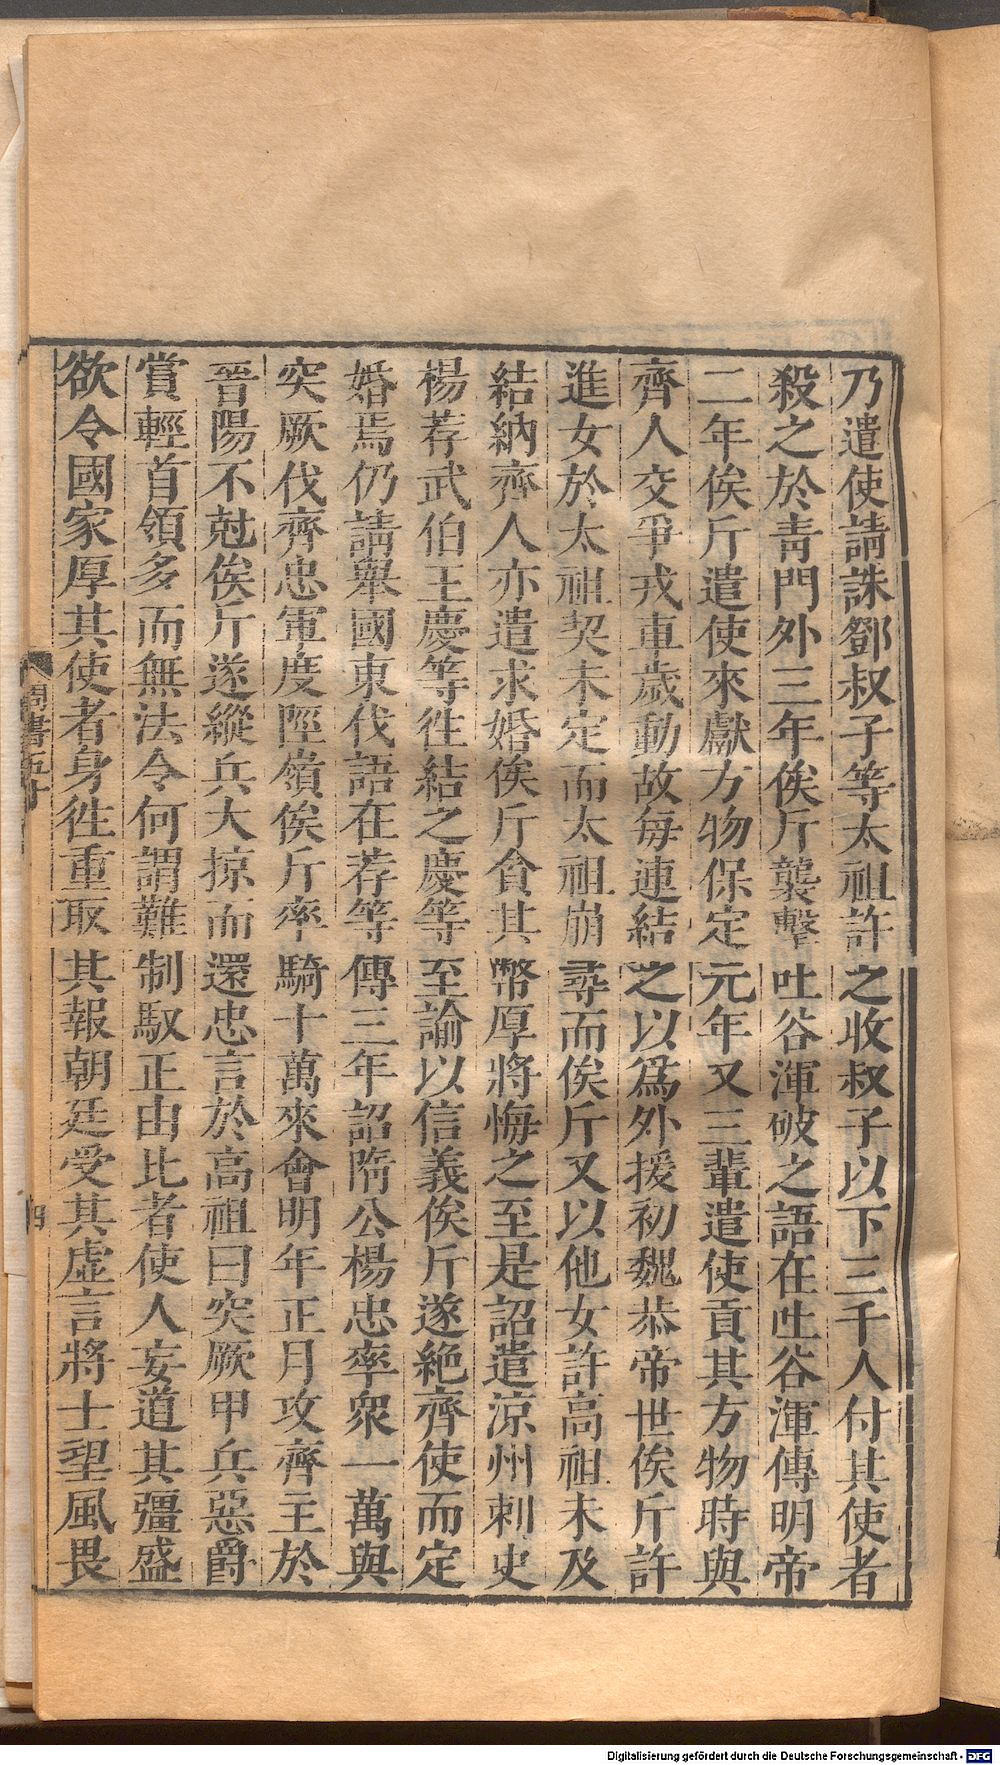 乃遣使請誅鄧叔子等太祖許之收叔子以下三千人付其使者
殺之於青門外三年俟斤襲擊吐谷渾破之語在吐谷渾傳明帝
二年俟斤遣使來獻方物保定元年又三輩遣使貢其方物時與
齊人交爭戎車歲動故每連結之以爲外援初魏恭帝世俟斤許
進女於太祖契未定而太祖崩尋而俟斤又以他女許高祖未及
結納齊人亦遣求婚俟斤貪其幣厚將悔之至是詔遣涼州刺史
楊荐武伯王慶等徃結之慶等至諭以信義俟斤遂絶齊使而定
婚焉仍請舉國東伐語在荐等傳三年詔隋公楊忠率衆一萬與
突厥伐齊忠軍度陘嶺俟斤率騎十萬來會明年正月攻齊主於
晉陽不尅俟斤遂縱兵大掠而還忠言於高祖曰突厥甲兵惡爵
賞輕首領多而無法令何謂難制馭正由比者使人妄道其彊盛
欲令國家厚其使者身徃重取其報朝廷受其虛言將士望風畏
周書五十
四
Digitalisierung gefördert durch die Deutsche Forschungsgemeinschaft - DFG